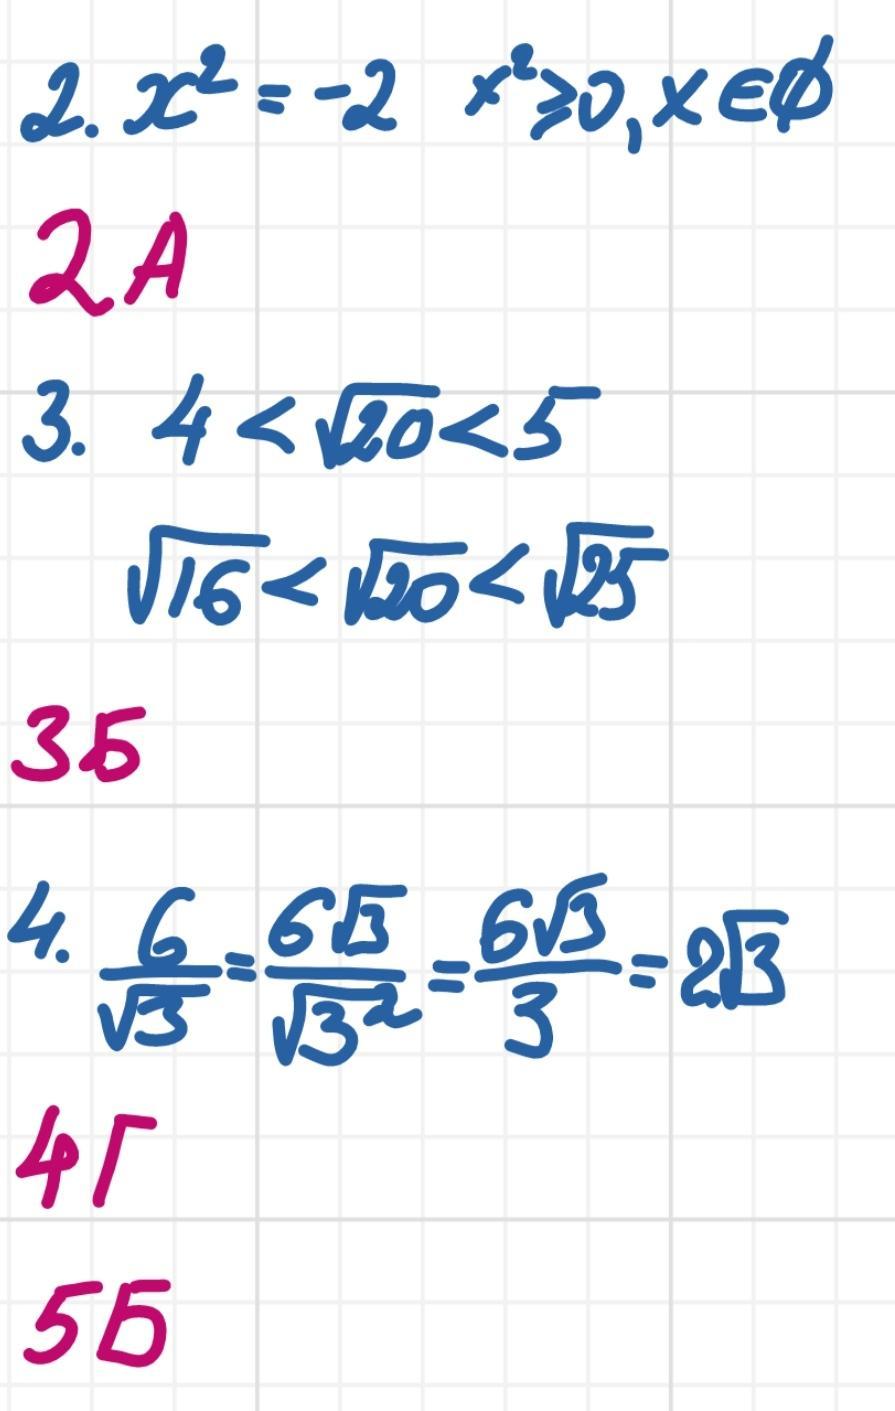 2. x² = -2 x² ⩾ 0, x ∈ ∅
2А
3. 4 < √20 < 5
√16 < √20 < √25
3Б
4. 6/√3 = 6√3/√3² = 6√3/3 = 2√3
4Г
5Б